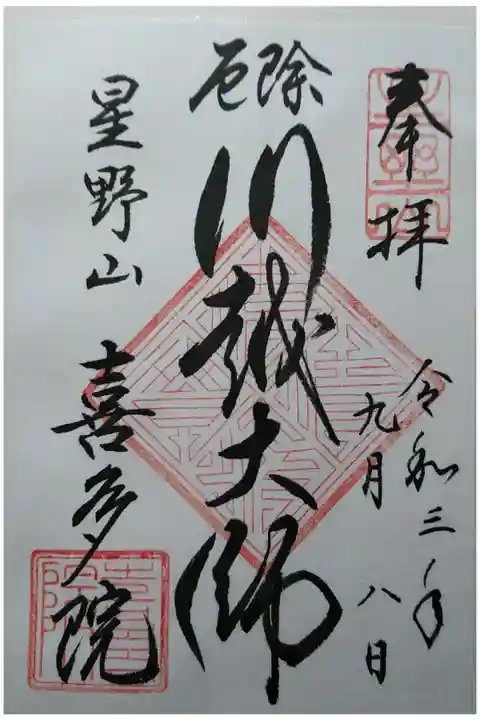 奉拝
令和三年
九月八日
厄除
川越大師
星野山
喜多院